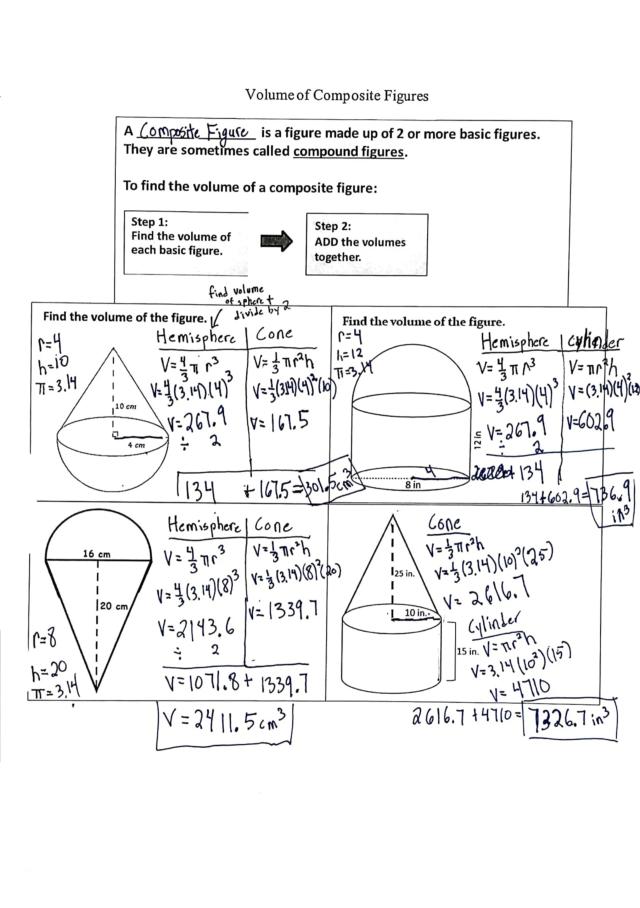 Volume of Composite Figures
A Composite Figure is a figure made up of 2 or more basic figures.
They are sometimes called compound figures.
To find the volume of a composite figure:
Step 1:
Find the volume of
each basic figure.
Step 2:
ADD the volumes
together.
find volume
of sphere +
divide by 2
Find the volume of the figure.
r=4
h=10
π=3.14
10 cm
4 cm
Hemisphere
V=4/3 π r³
V=4/3(3.14)(4)³
V=267.9
÷ 2
Cone
V=1/3πr²h
V=1/3(3.14)(4)²(10)
V=167.5
134 +167.5=301.5cm³
Find the volume of the figure.
r=4
h=12
π=3.14
12 in
4
8 in
Hemisphere
V=4/3 π r³
V=4/3(3.14)(4)³
V=267.9
÷ 2
134
Cylinder
V=πr²h
V=(3.14)(4)²(12)
V=602.9
134+602.9=736.9
in³
16 cm
20 cm
r=8
h=20
π=3.14
Hemisphere
V=4/3 πr³
V=4/3(3.14)(8)³
V=2143.6
÷ 2
Cone
V=1/3πr²h
V=1/3(3.14)(8)²(20)
V=1339.7
V=1071.8+1339.7
V=2411.5cm³
25 in.
10 in.
15 in.
Cone
V=1/3πr²h
V=1/3(3.14)(10)²(25)
V=2616.7
Cylinder
V=πr²h
V=3.14(10²)(15)
V=4710
2616.7+4710=7326.7in³